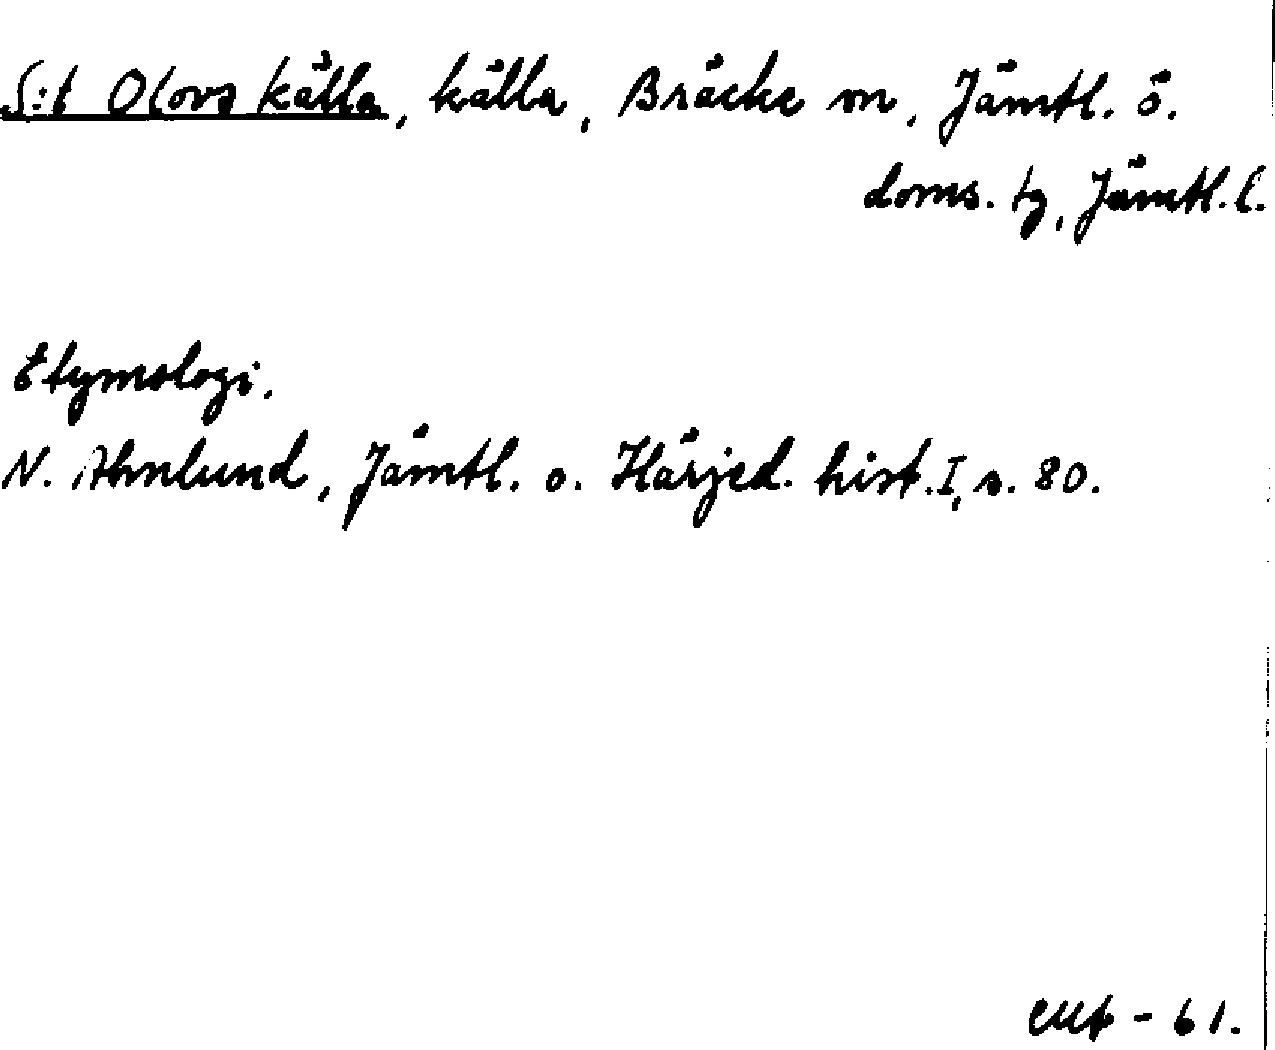 S:t Olovs källa, källa, Bräcke sn, Jämtl. ö.
doms. tg, Jämtl. l.
Etymologi.
N. Ahnlund, Jämtl. o. Härjed. hist. I, s. 80.
- 61.